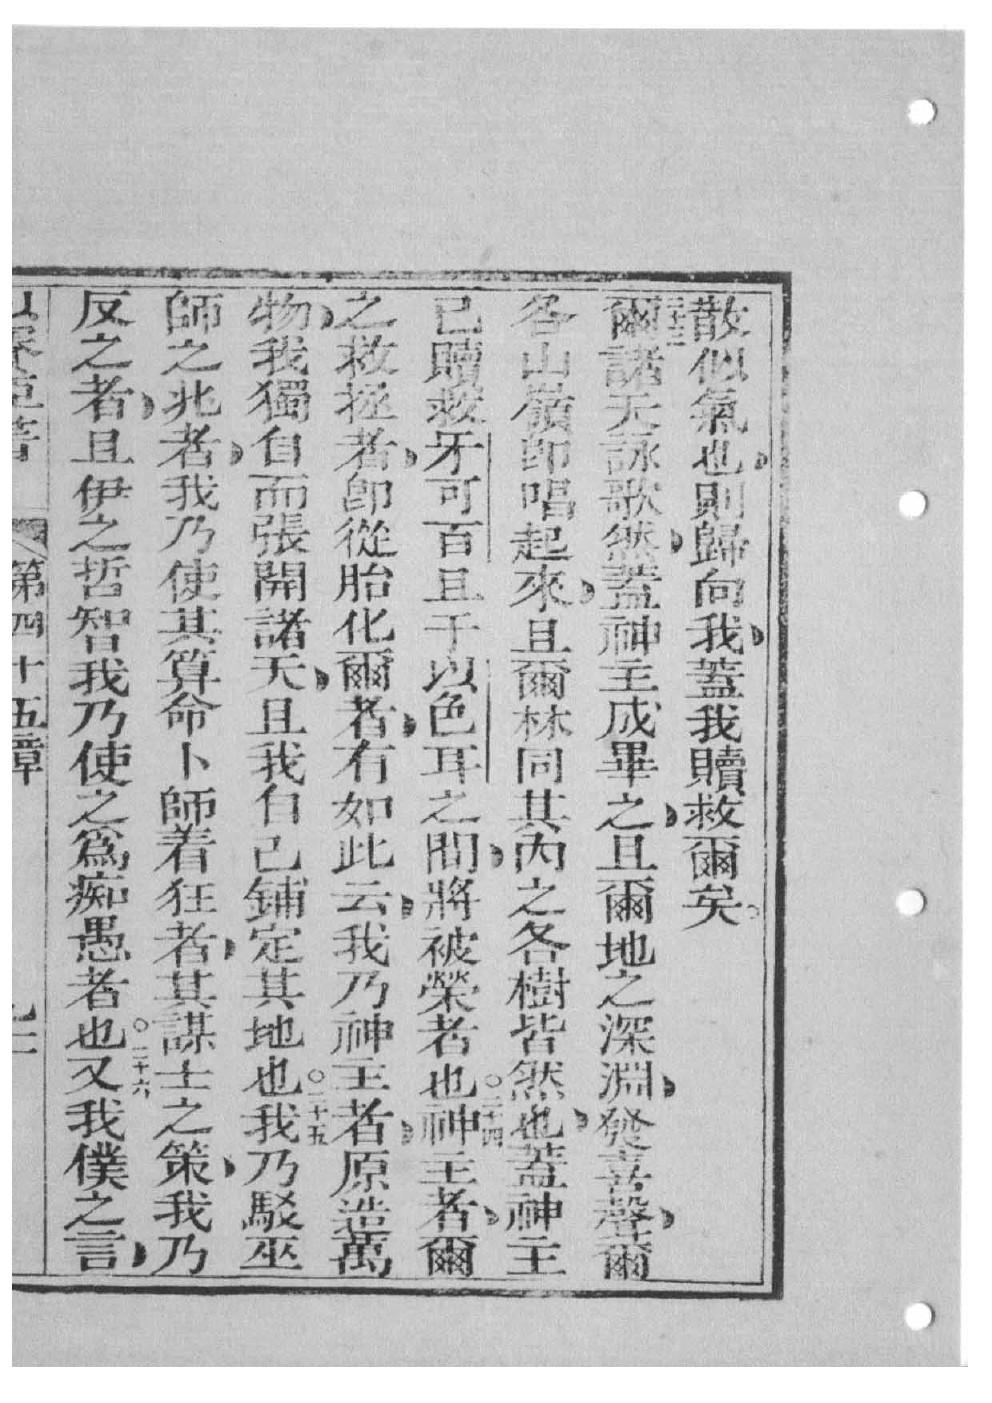 散似氣也則歸向我蓋我贖救爾矣
爾諸天詠歌然蓋神主成畢之且爾地之深淵發喜聲爾
各山嶺卽唱起來且爾林同其內之各樹皆然也蓋神主
已贖救牙可百且于以色耳之間將被榮者也○二十四神主者爾
之救拯者卽從胎化爾者有如此云我乃神主者原造萬
物我獨自而張開諸天且我自己鋪定其地也○二十五我乃駁巫
師之兆者我乃使其算命卜師着狂者其謀士之策我乃
反之者且伊之哲智我乃使之爲痴愚者也○二十六又我僕之言
第四十五章